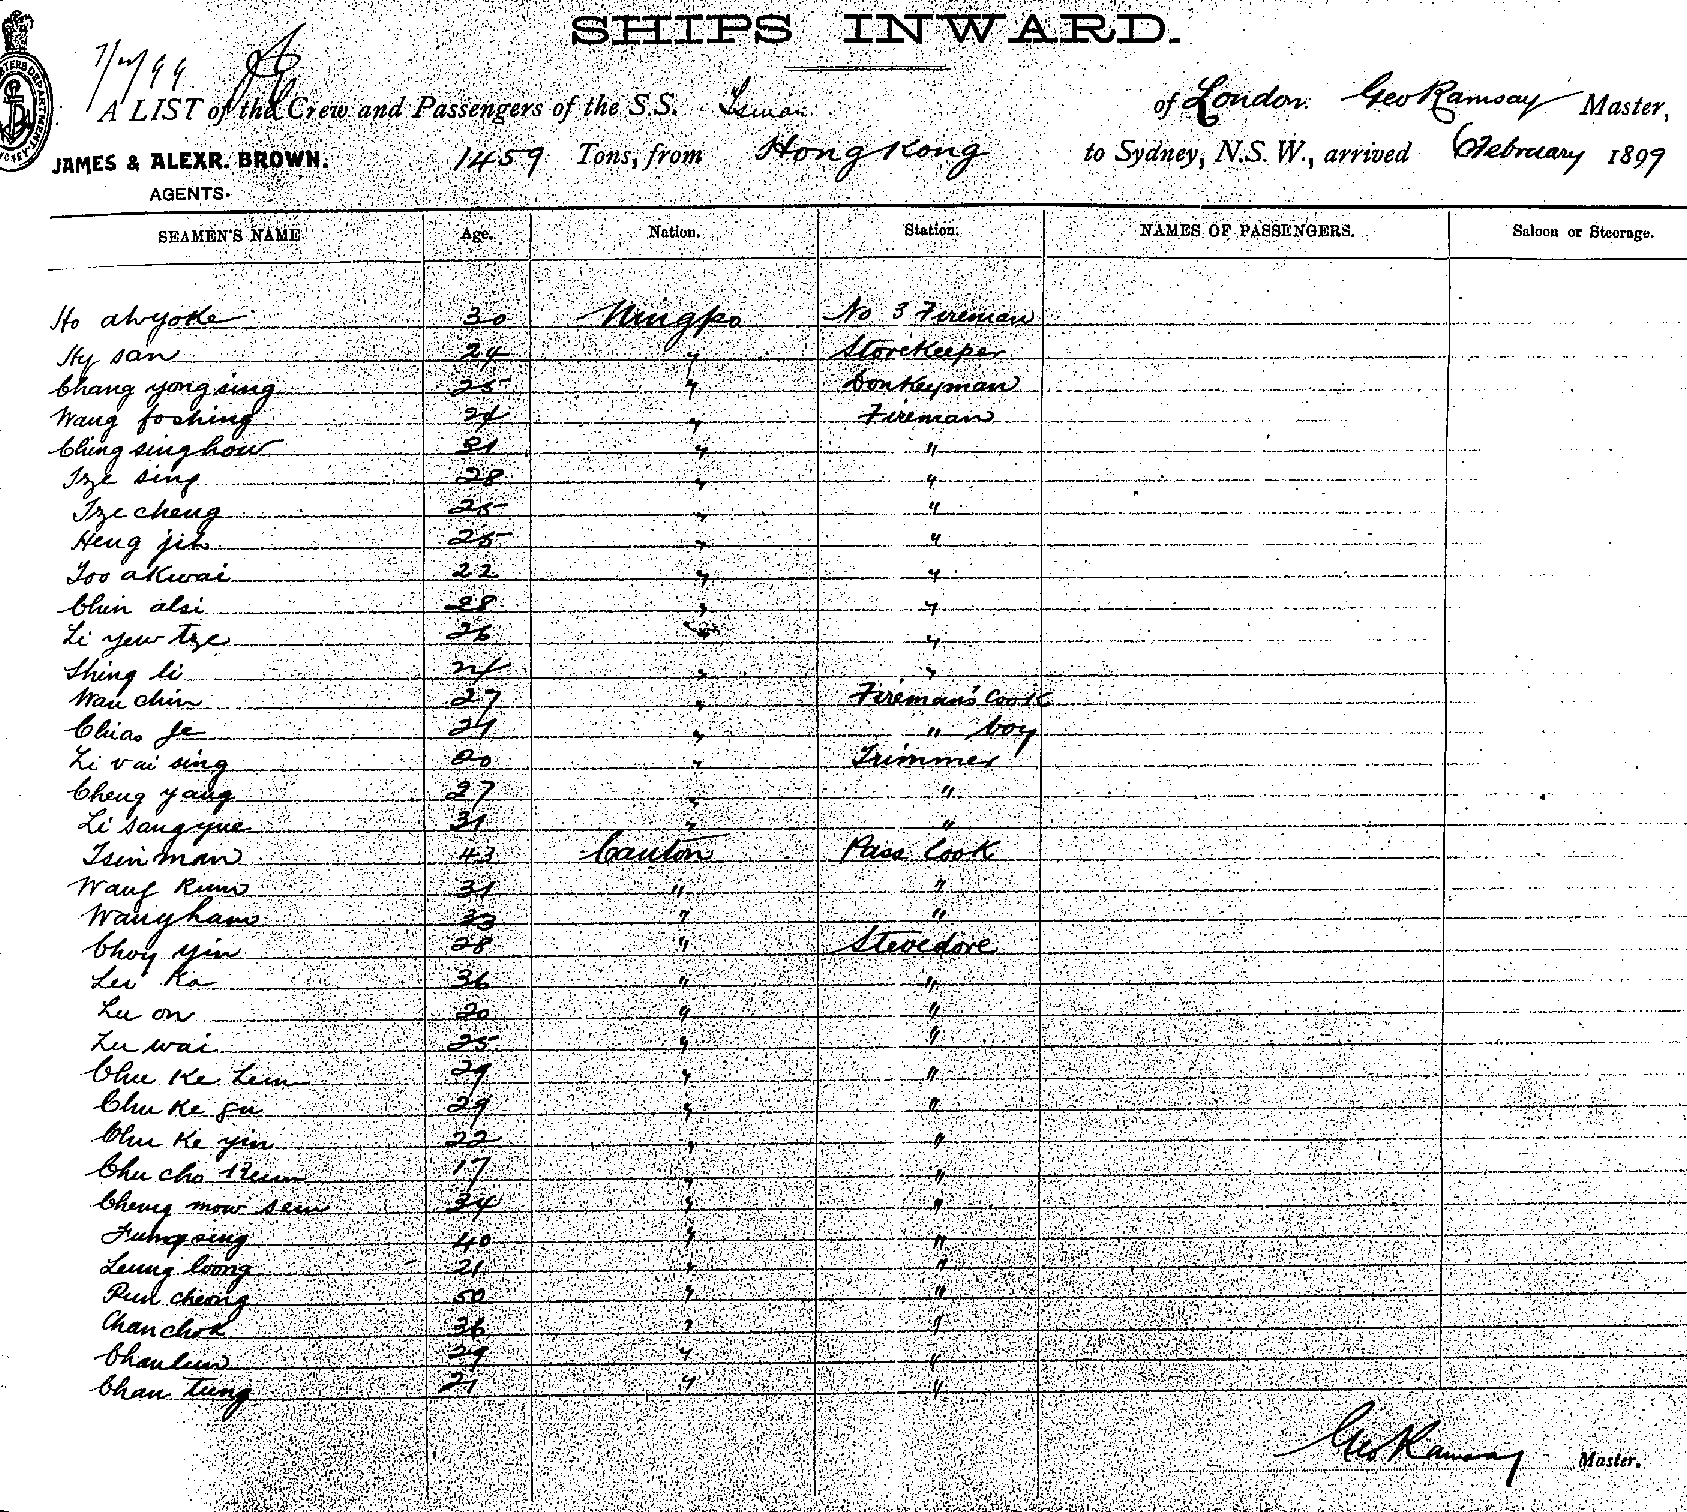 SHIPS INWARD.
A LIST of the Crew and Passengers of the S.S. Tsinan of London. Geo Ramsay Master,
JAMES & ALEXR. BROWN. 1459 Tons, from Hong Kong to Sydney, N.S.W., arrived February 1899
AGENTS.
SEAMEN'S NAME Age. Nation. Station. NAMES OF PASSENGERS. Saloon or Steerage.
Ho ahyoke 30 Ningpo No 3 Fireman
Hy san 24 " Storekeeper
Chang yong sing 25 " Donkeyman
Wang foching 24 " Fireman
Ching sing how 31 " "
Tze sing 28 " "
Tze cheng 25 " "
Heng 25 " "
Too akwai 22 " "
Chin alsi 28 " "
Li yew tze 26 " "
Shing li 24 " "
Wan chin 27 " Fireman's Cook
Chias 24 " " boy
Li vai sing " Trimmer
Cheng yang 27 " "
Li sang yue 31 " "
Tsin man 43 Canton Pass Cook
Wang Kum 31 " "
Wang ham 33 " "
Choy yin 28 " Stevedore
Lei Ka 36 " "
Lu on 20 " "
Lu wai 25 " "
Chu Ke Lem 29 " "
Chu Ke 29 " "
Chu Ke yin 22 " "
Chu cho 17 " "
Cheng mow sem 34 " "
Fung sing 40 " "
Leung loong 21 " "
Pun cheong 50 " "
Chan chok 36 " "
Chan lun 29 " "
Chan tung 21 " "
Geo Ramsay Master.